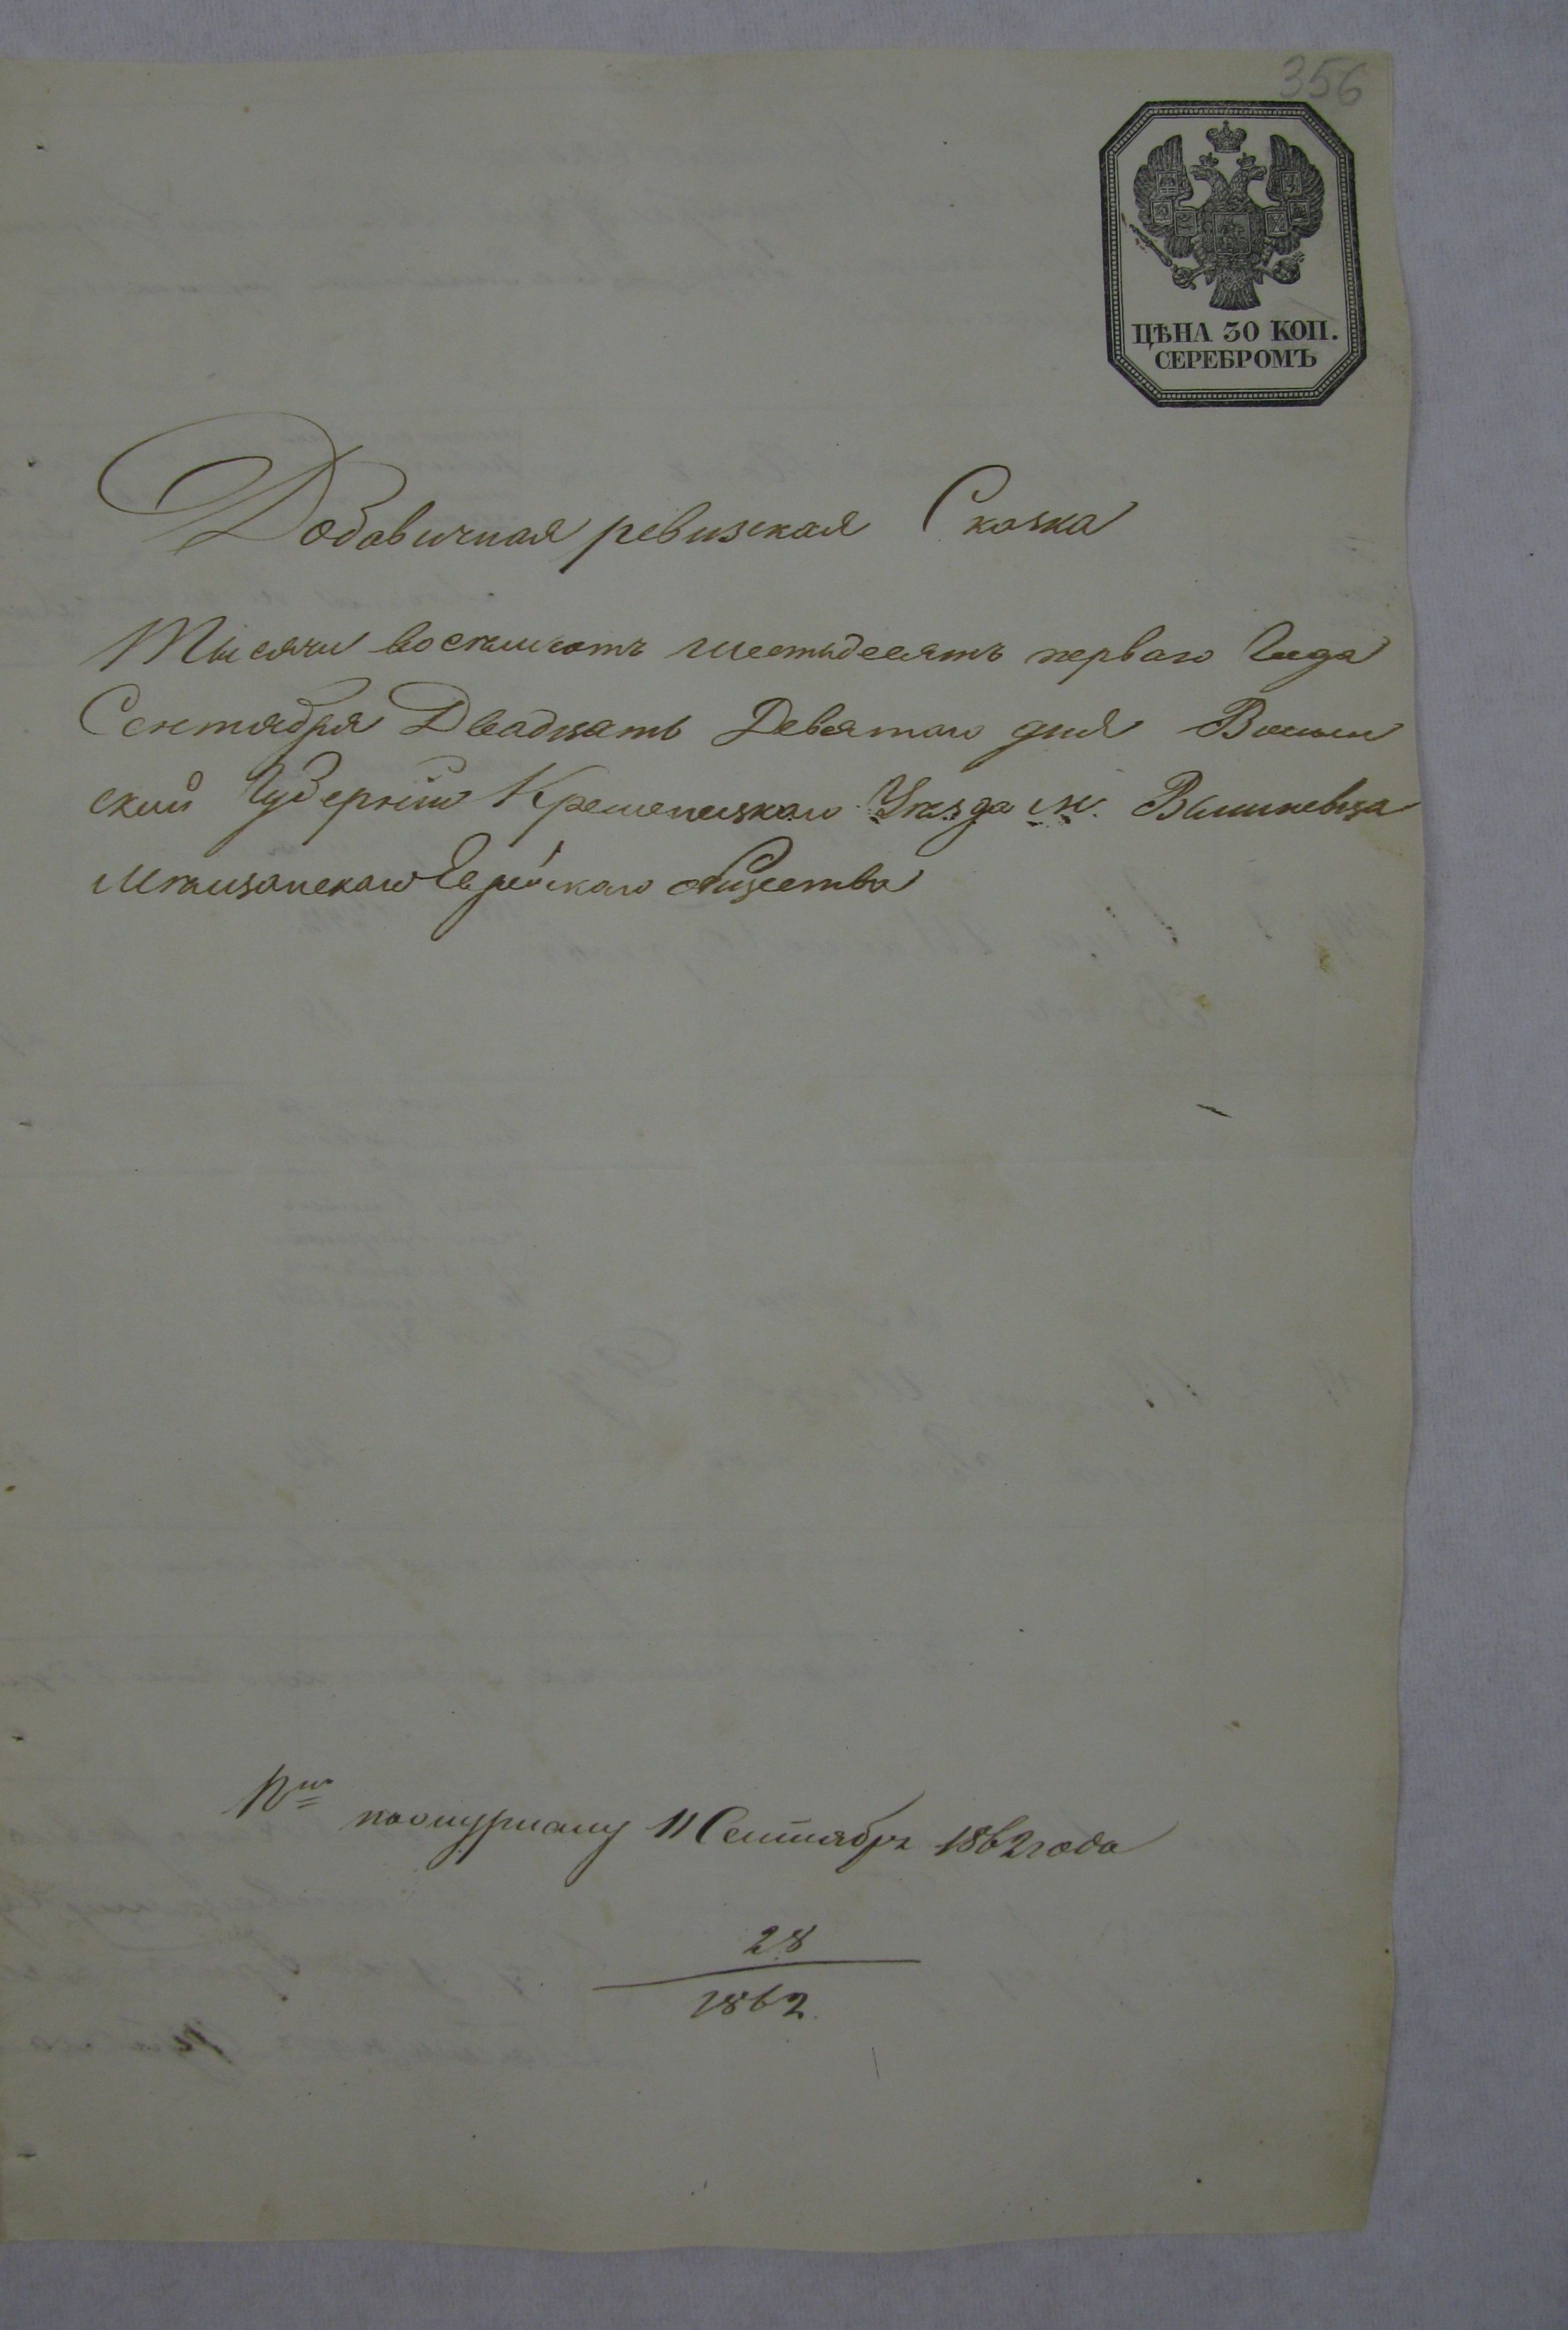 356
ЦѢНА 30 КОП.
СЕРЕБРОМЪ
Добавичная ревизская Сказка
Тысячи восемьсотъ шестьдесятъ перваго Года
Сентября Двадцать Девятаго дня Волын
ский Губерніи Кременецкаго Уѣзда м. Вишневца
Мѣщанскаго Еврейскаго общества
11 Сентября 1862 года
28
1862.